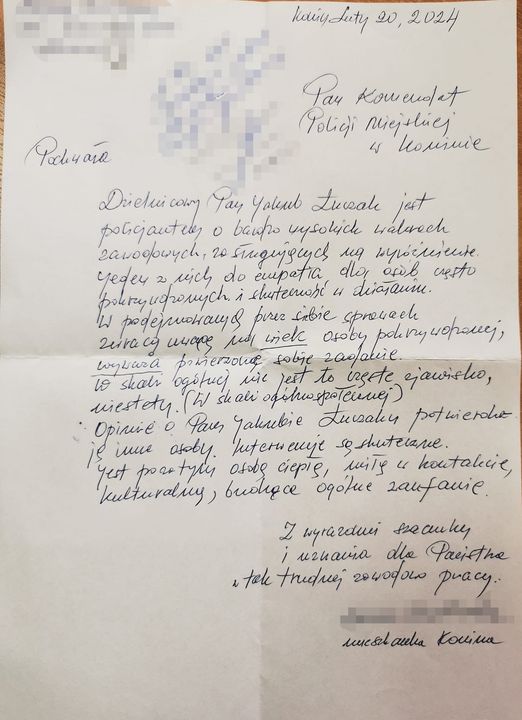 Konin, Luty 20, 2024
Pan Komendat
Policji Miejskiej
w Koninie
Pochwała
Dzielnicowy Pan Jakub Łuczak jest
policjantem o bardzo wysokich walorach
zawodowych, zasługujących na wyróżnienie.
Jeden z nich to empatia dla osób często
pokrzywdzonych i skuteczność w działaniu.
W podejmowanych przez siebie sprawach
zwraca uwagę na wiek osoby pokrzywdzonej,
wyważa powierzone sobie zadanie.
W skali ogólnej nie jest to częste zjawisko,
niestety. (W skali ogólnospołecznej)
Opinię o Panu Jakubie Łuczaku potwierdza-
ją inne osoby. Interwencje są skuteczne.
Jest pozatym osobą ciepłą, miłą w kontakcie,
kulturalną, budzące ogólne zaufanie.
Z wyrazami szacunku
i uznania dla Państwa
w tak trudnej zawodowo pracy.
mieszkanka Konina